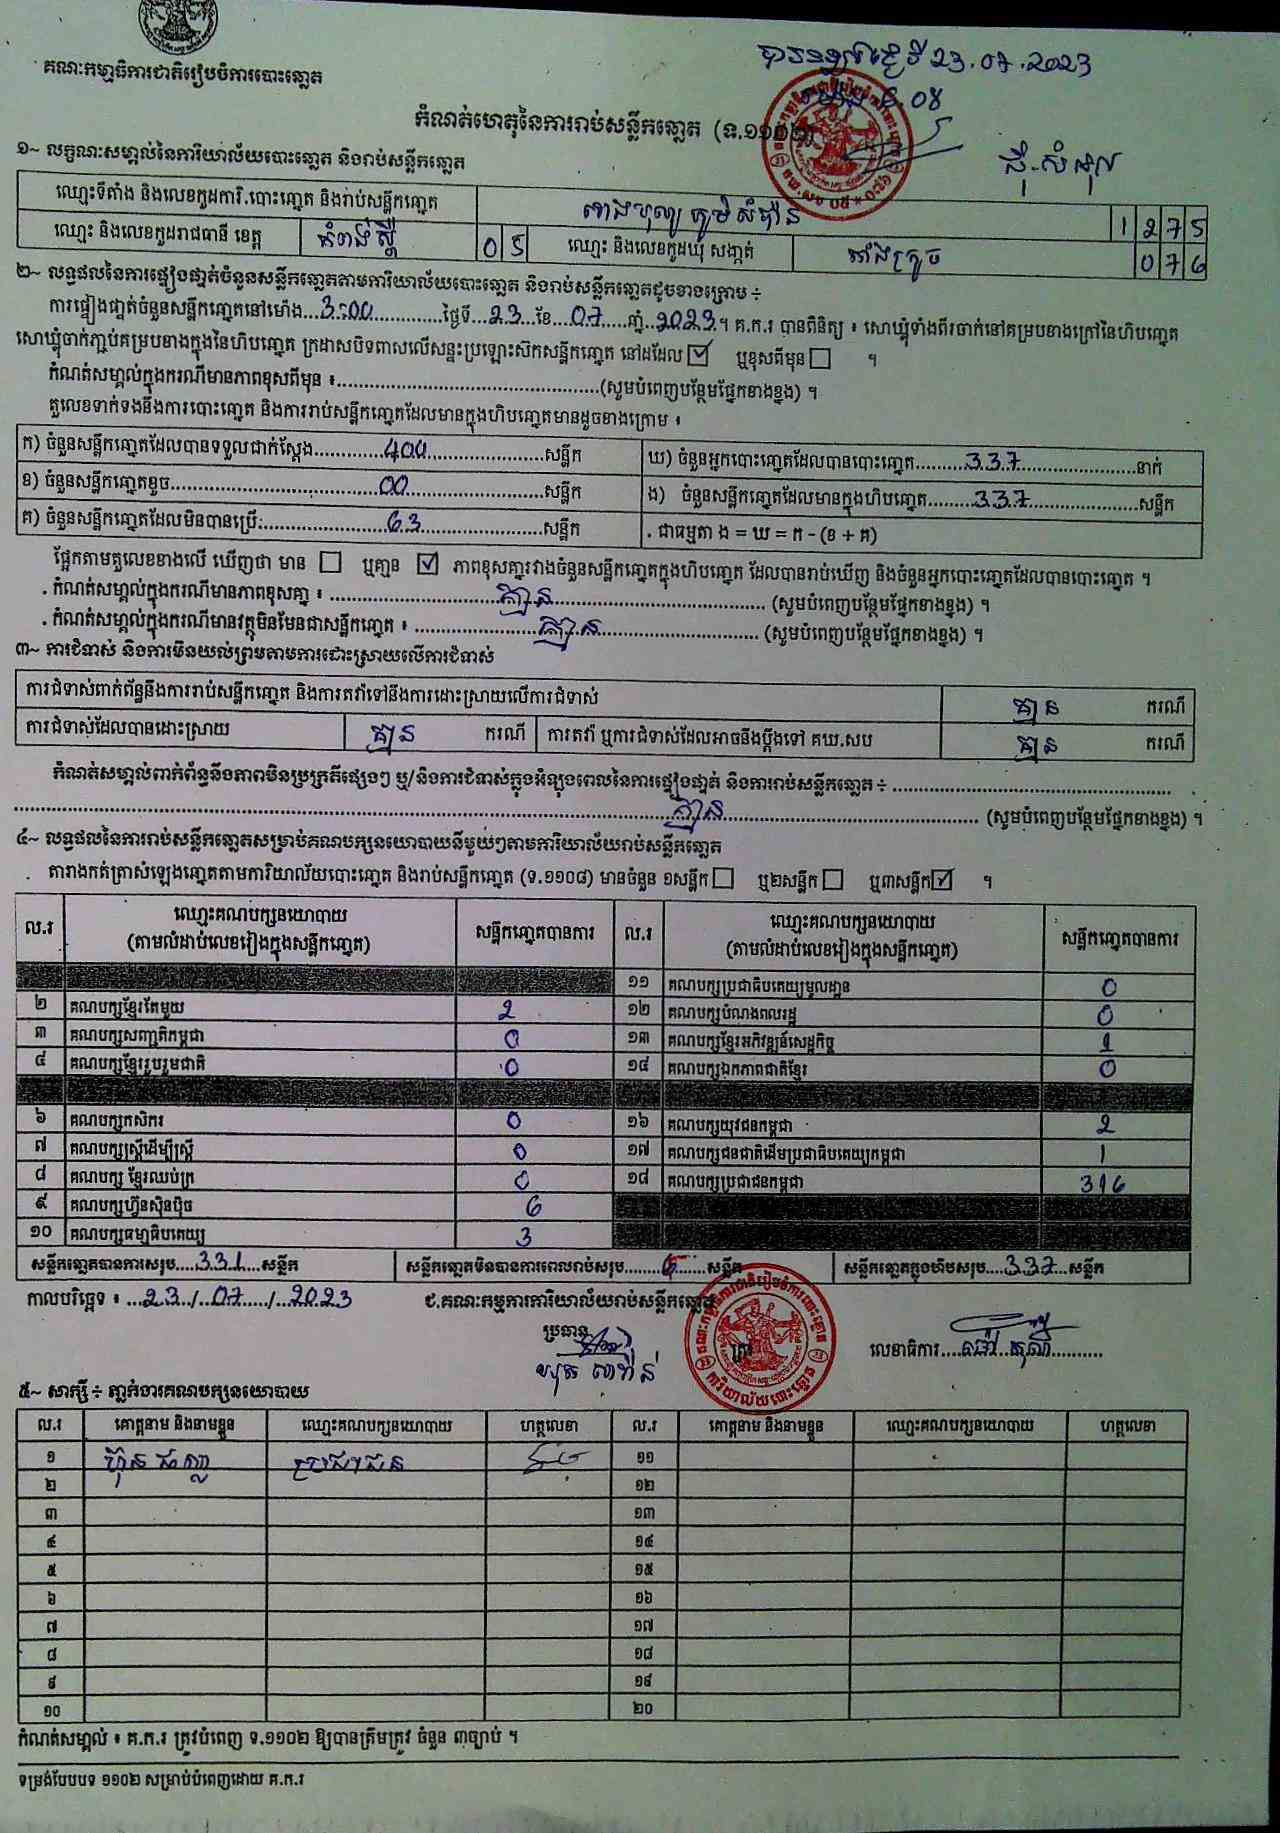 គណៈកម្មាធិការជាតិរៀបចំការបោះឆ្នោត
23.07.2023
កំណត់ហេតុនៃការរាប់សន្លឹកឆ្នោត (ទ.១១០២)
១~ លក្ខណៈសម្គាល់នៃការិយាល័យបោះឆ្នោត និងរាប់សន្លឹកឆ្នោត
ឈ្មោះទីតាំង និងលេខកូដការិ.បោះឆ្នោត និងរាប់សន្លឹកឆ្នោត 1275
ឈ្មោះ និងលេខកូដរាជធានី ខេត្ត កំពង់ស្ពឺ 05 ឈ្មោះ និងលេខកូដឃុំ សង្កាត់ 076
២~ លទ្ធផលនៃការផ្ទៀងផ្ទាត់ចំនួនសន្លឹកឆ្នោតតាមការិយាល័យបោះឆ្នោត និងរាប់សន្លឹកឆ្នោតដូចខាងក្រោម ÷
ការផ្ទៀងផ្ទាត់ចំនួនសន្លឹកឆ្នោតនៅម៉ោង...3:00...ថ្ងៃទី...23...ខែ...07...ឆ្នាំ...2023។ គ.ក.រ បានពិនិត្យ ៖ សោឃ្លុំទាំងពីរចាក់នៅគម្របខាងក្រៅនៃហិបឆ្នោត
សោឃ្លុំចាក់ភ្ជាប់គម្របខាងក្នុងនៃហិបឆ្នោត ក្រដាសបិទពាសលើសន្ទះប្រឡោះស៊កសន្លឹកឆ្នោត នៅដដែល ☑ ឬខុសពីមុន ☐ ។
កំណត់សម្គាល់ក្នុងករណីមានភាពខុសពីមុន ៖...(សូមបំពេញបន្ថែមផ្នែកខាងខ្នង) ។
តួលេខទាក់ទងនឹងការបោះឆ្នោត និងការរាប់សន្លឹកឆ្នោតដែលមានក្នុងហិបឆ្នោតមានដូចខាងក្រោម ៖
ក) ចំនួនសន្លឹកឆ្នោតដែលបានទទួលជាក់ស្តែង...400...សន្លឹក ឃ) ចំនួនអ្នកបោះឆ្នោតដែលបានបោះឆ្នោត...337...នាក់
ខ) ចំនួនសន្លឹកឆ្នោតខូច...00...សន្លឹក ង) ចំនួនសន្លឹកឆ្នោតដែលមានក្នុងហិបឆ្នោត...337...សន្លឹក
គ) ចំនួនសន្លឹកឆ្នោតដែលមិនបានប្រើ:...63...សន្លឹក . ជាធម្មតា ង = ឃ = ក - (ខ + គ)
ផ្អែកតាមតួលេខខាងលើ ឃើញថា មាន ☐ ឬគ្មាន ☑ ភាពខុសគ្នារវាងចំនួនសន្លឹកឆ្នោតក្នុងហិបឆ្នោត ដែលបានរាប់ឃើញ និងចំនួនអ្នកបោះឆ្នោតដែលបានបោះឆ្នោត ។
. កំណត់សម្គាល់ក្នុងករណីមានភាពខុសគ្នា ៖ ...គ្មាន... (សូមបំពេញបន្ថែមផ្នែកខាងខ្នង) ។
. កំណត់សម្គាល់ក្នុងករណីមានវត្ថុមិនមែនជាសន្លឹកឆ្នោត ៖ ...គ្មាន... (សូមបំពេញបន្ថែមផ្នែកខាងខ្នង) ។
៣~ ការជំទាស់ និងការមិនយល់ព្រមតាមការដោះស្រាយលើការជំទាស់
ការជំទាស់ពាក់ព័ន្ធនឹងការរាប់សន្លឹកឆ្នោត និងការតវ៉ាទៅនឹងការដោះស្រាយលើការជំទាស់ គ្មាន ករណី
ការជំទាស់ដែលបានដោះស្រាយ គ្មាន ករណី ការតវ៉ា ឬការជំទាស់ដែលអាចនឹងប្តឹងទៅ គឃ.សប គ្មាន ករណី
កំណត់សម្គាល់ពាក់ព័ន្ធនឹងភាពមិនប្រក្រតីផ្សេងៗ ឬ/និងការជំទាស់ក្នុងអំឡុងពេលនៃការផ្ទៀងផ្ទាត់ និងការរាប់សន្លឹកឆ្នោត ÷ ...
...គ្មាន... (សូមបំពេញបន្ថែមផ្នែកខាងខ្នង) ។
៤~ លទ្ធផលនៃការរាប់សន្លឹកឆ្នោតសម្រាប់គណបក្សនយោបាយនីមួយៗតាមការិយាល័យរាប់សន្លឹកឆ្នោត
. តារាងកត់ត្រាសំឡេងឆ្នោតតាមការិយាល័យបោះឆ្នោត និងរាប់សន្លឹកឆ្នោត (ទ.១១០៨) មានចំនួន ១សន្លឹក ☐ ឬ២សន្លឹក ☐ ឬ៣សន្លឹក ☑ ។
ល.រ ឈ្មោះគណបក្សនយោបាយ (តាមលំដាប់លេខរៀងក្នុងសន្លឹកឆ្នោត) សន្លឹកឆ្នោតបានការ ល.រ ឈ្មោះគណបក្សនយោបាយ (តាមលំដាប់លេខរៀងក្នុងសន្លឹកឆ្នោត) សន្លឹកឆ្នោតបានការ
១១ គណបក្សប្រជាធិបតេយ្យមូលដ្ឋាន 0
២ គណបក្សខ្មែរតែមួយ 2 ១២ គណបក្សបំណងពលរដ្ឋ 0
៣ គណបក្សសញ្ជាតិកម្ពុជា 0 ១៣ គណបក្សខ្មែរអភិវឌ្ឍន៍សេដ្ឋកិច្ច 1
៤ គណបក្សខ្មែររួបរួមជាតិ 0 ១៤ គណបក្សឯកភាពជាតិខ្មែរ 0
៦ គណបក្សកសិករ 0 ១៦ គណបក្សយុវជនកម្ពុជា 2
៧ គណបក្សស្ត្រីដើម្បីស្ត្រី 0 ១៧ គណបក្សជនជាតិដើមប្រជាធិបតេយ្យកម្ពុជា 1
៨ គណបក្ស ខ្មែរឈប់ក្រ 0 ១៨ គណបក្សប្រជាជនកម្ពុជា 316
៩ គណបក្សហ្វ៊ុនស៊ិនប៉ិច 6
១០ គណបក្សធម្មាធិបតេយ្យ 3
សន្លឹកឆ្នោតបានការសរុប...331...សន្លឹក សន្លឹកឆ្នោតមិនបានការពេលរាប់សរុប...6...សន្លឹក សន្លឹកឆ្នោតក្នុងហិបសរុប...337...សន្លឹក
កាលបរិច្ឆេទ ៖ ...23.../...07.../...2023 ជ.គណៈកម្មការការិយាល័យរាប់សន្លឹកឆ្នោត
ប្រធាន
លេខាធិការ
៥~ សាក្សី ÷ ភ្នាក់ងារគណបក្សនយោបាយ
ល.រ គោត្តនាម និងនាមខ្លួន ឈ្មោះគណបក្សនយោបាយ ហត្ថលេខា ល.រ គោត្តនាម និងនាមខ្លួន ឈ្មោះគណបក្សនយោបាយ ហត្ថលេខា
១ ប្រជាជន ១១
២ ១២
៣ ១៣
៤ ១៤
៥ ១៥
៦ ១៦
៧ ១៧
៨ ១៨
៩ ១៩
១០ ២០
កំណត់សម្គាល់ ៖ គ.ក.រ ត្រូវបំពេញ ទ.១១០២ ឱ្យបានត្រឹមត្រូវ ចំនួន ៣ច្បាប់ ។
ទម្រង់បែបបទ ១១០២ សម្រាប់បំពេញដោយ គ.ក.រ